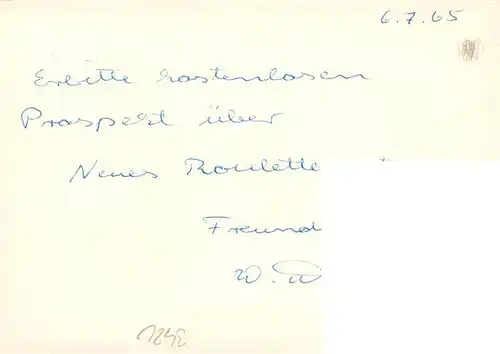 6.7.65
Erbitte kostenlosen
Prospekt über
Neues Roulette
Freund
W.
1242